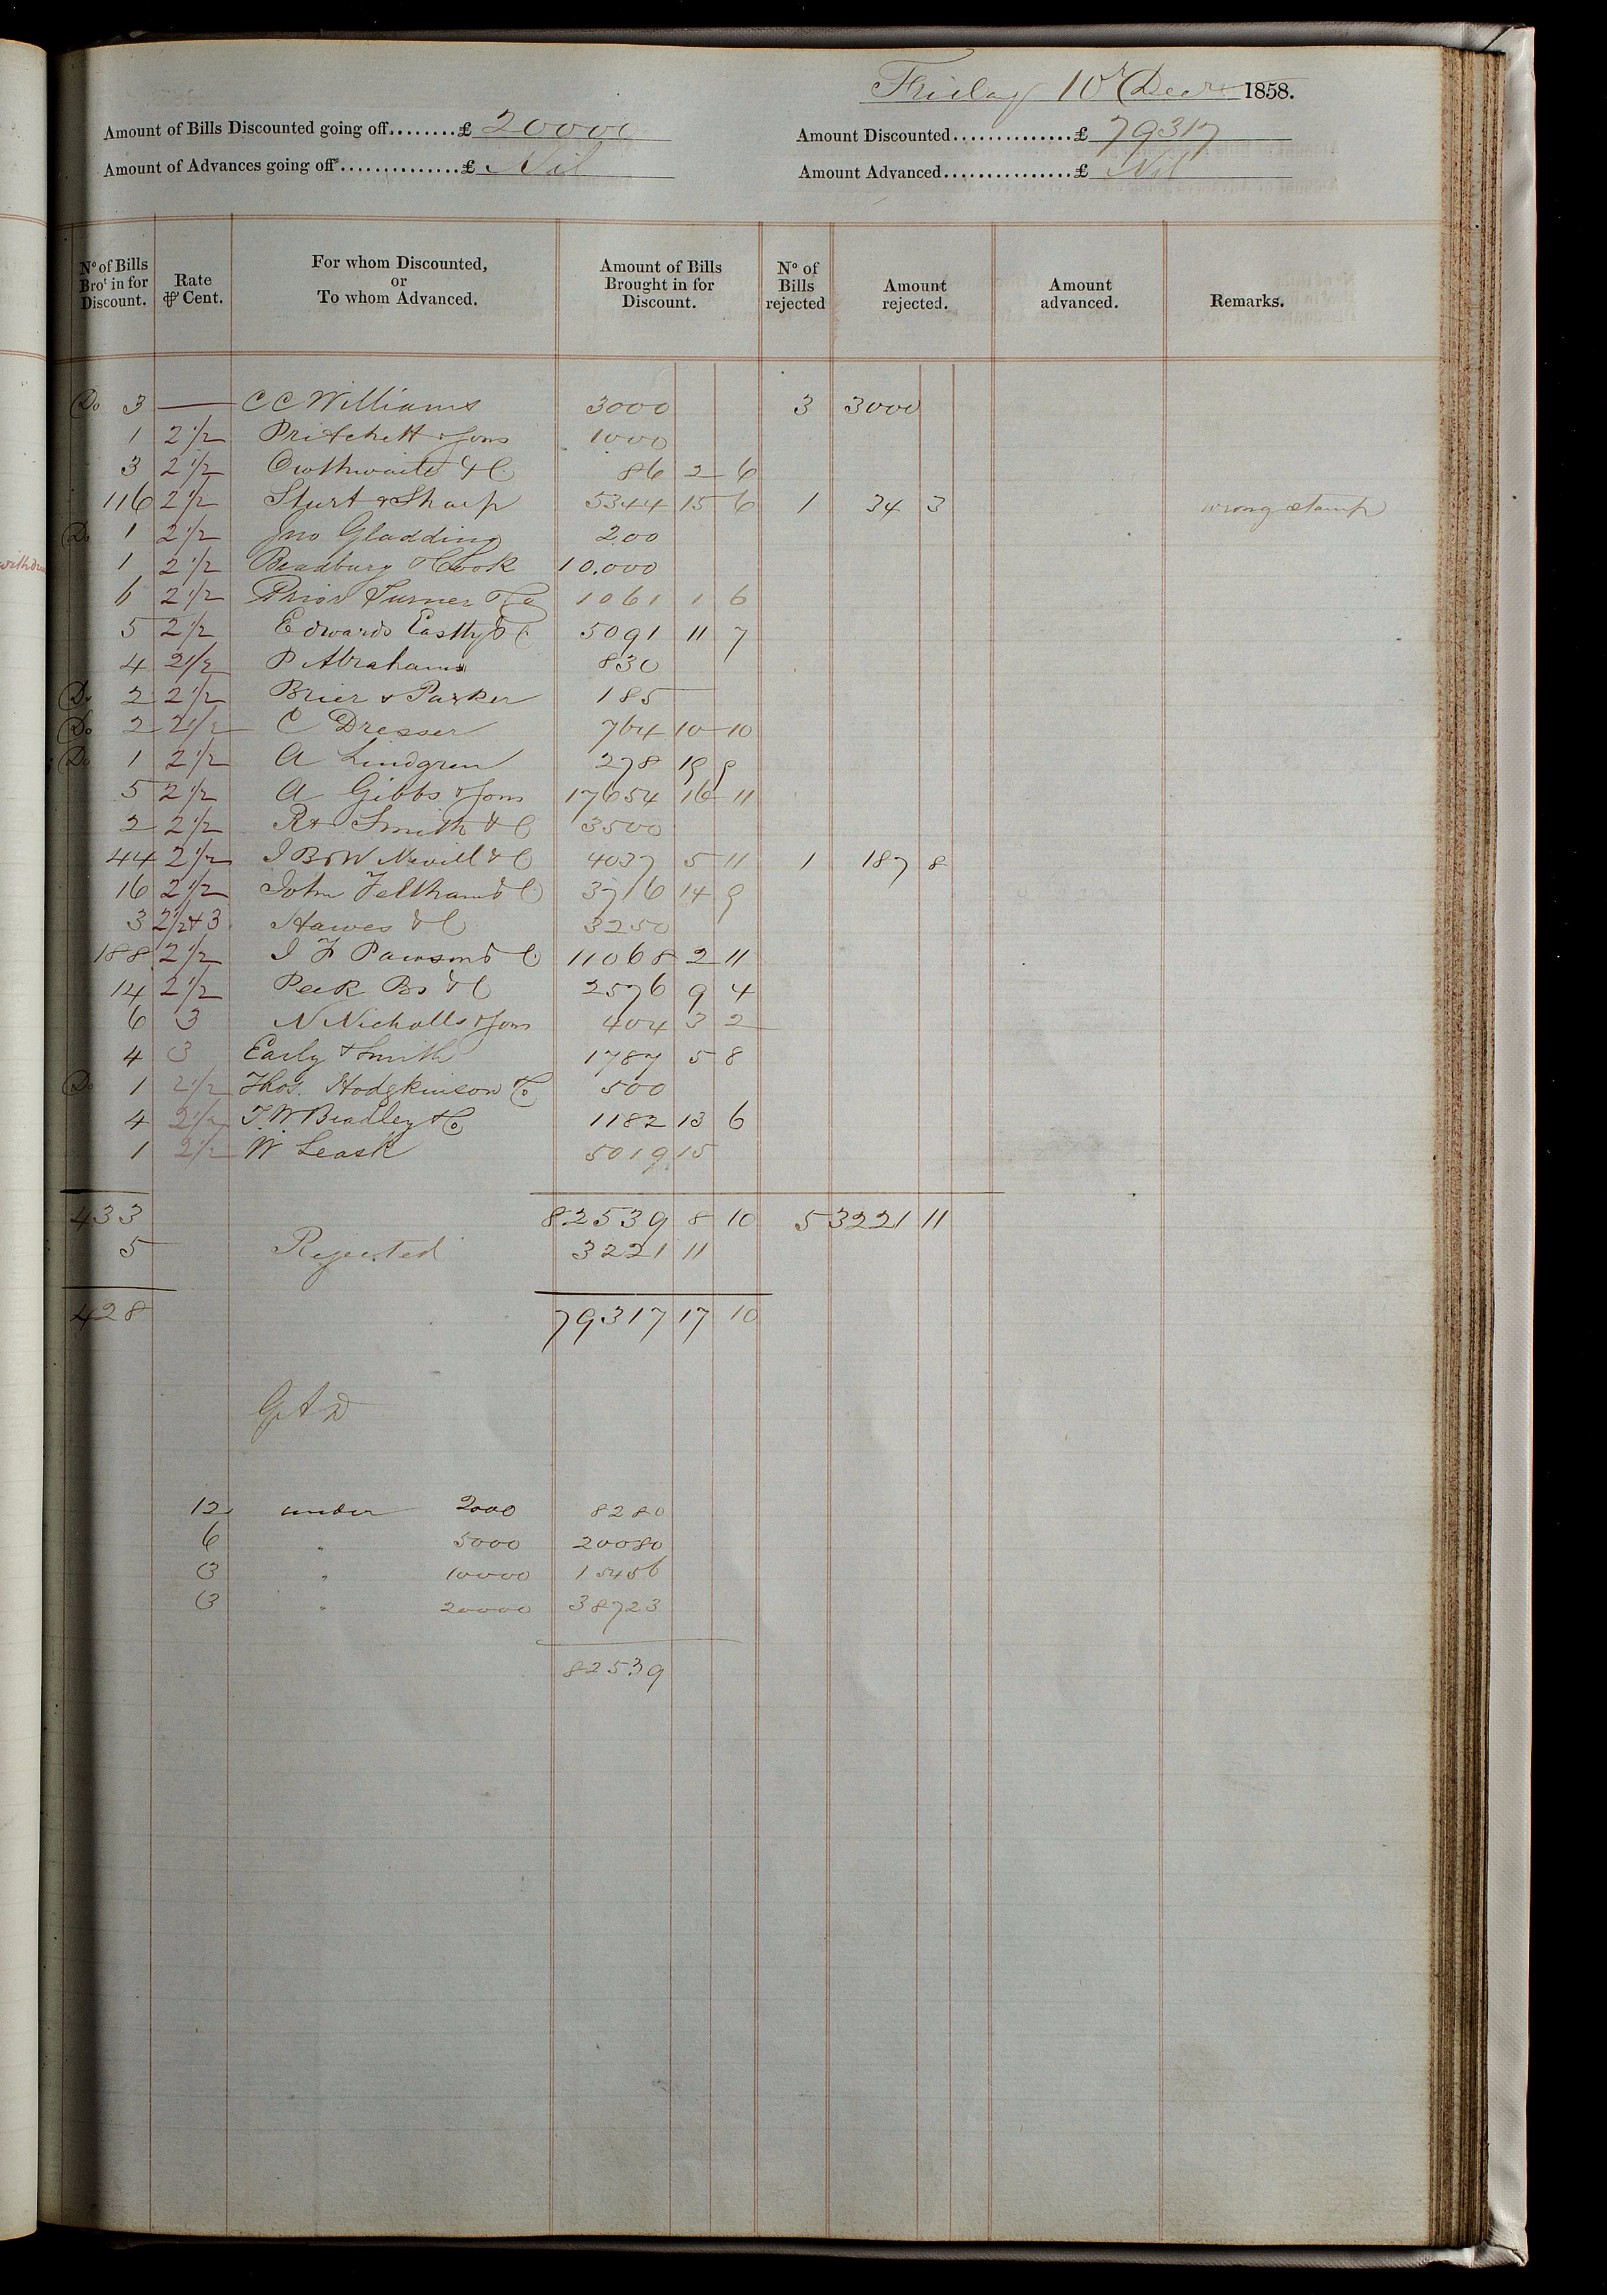 Friday 10 Decr 1858.
Amount of Bills Discounted going off........£ 20000
Amount Discounted..............£ 79317
Amount of Advances going off..............£ Nil
Amount Advanced...............£ Nil
No of Bills Brot in for Discount. Rate ⅌ Cent. For whom Discounted, or To whom Advanced. Amount of Bills Brought in for Discount. No of Bills rejected Amount rejected. Amount advanced. Remarks.
Do 3 — C C Williams 3000 3 3000
1 2 1/2 Pritchett & Sons 1000
3 2 1/2 Outhwaite & C 86 2 6
116 2 1/2 Sturt & Sharp 5344 15 6 1 34 3 wrong stamp
Do 1 2 1/2 Jno Gladding 200
1 2 1/2 Bradbury & Cook 10.000
6 2 1/2 Prior Turner & Co 1061 1 6
5 2 1/2 Edwards Eastty & C 5091 11 7
4 2 1/2 P Abrahams 830
Do 2 2 1/2 Brier & Parker 185
Do 2 2 1/2 C Dresser 764 10 10
Do 1 2 1/2 A Lindgren 278 19 9
5 2 1/2 A Gibbs & Sons 17654 16 11
2 2 1/2 Rt Smith & C 3500
44 2 1/2 I B & W Nevill & C 4037 5 11 1 187 8
16 2 1/2 John Feltham & C 3716 14 9
3 2 1/2 & 3 Hawes & C 3250
188 2 1/2 I F Pawson & C 11068 2 11
14 2 1/2 Peek Bs & C 2576 9 4
6 3 N Nicholls & Sons 404 3 2
4 3 Early & Smith 1787 5 8
Do 1 2 1/2 Thos. Hodgkinson & Co 500
4 2 1/2 T. W Bradley & Co 1182 13 6
1 2 1/2 W Leask 5019 15
433 82539 8 10 5 3221 11
5 Rejected 3221 11
428 79317 17 10
12 under 2000 8280
6 " 5000 20080
3 " 10000 15456
3 " 20000 38723
82539